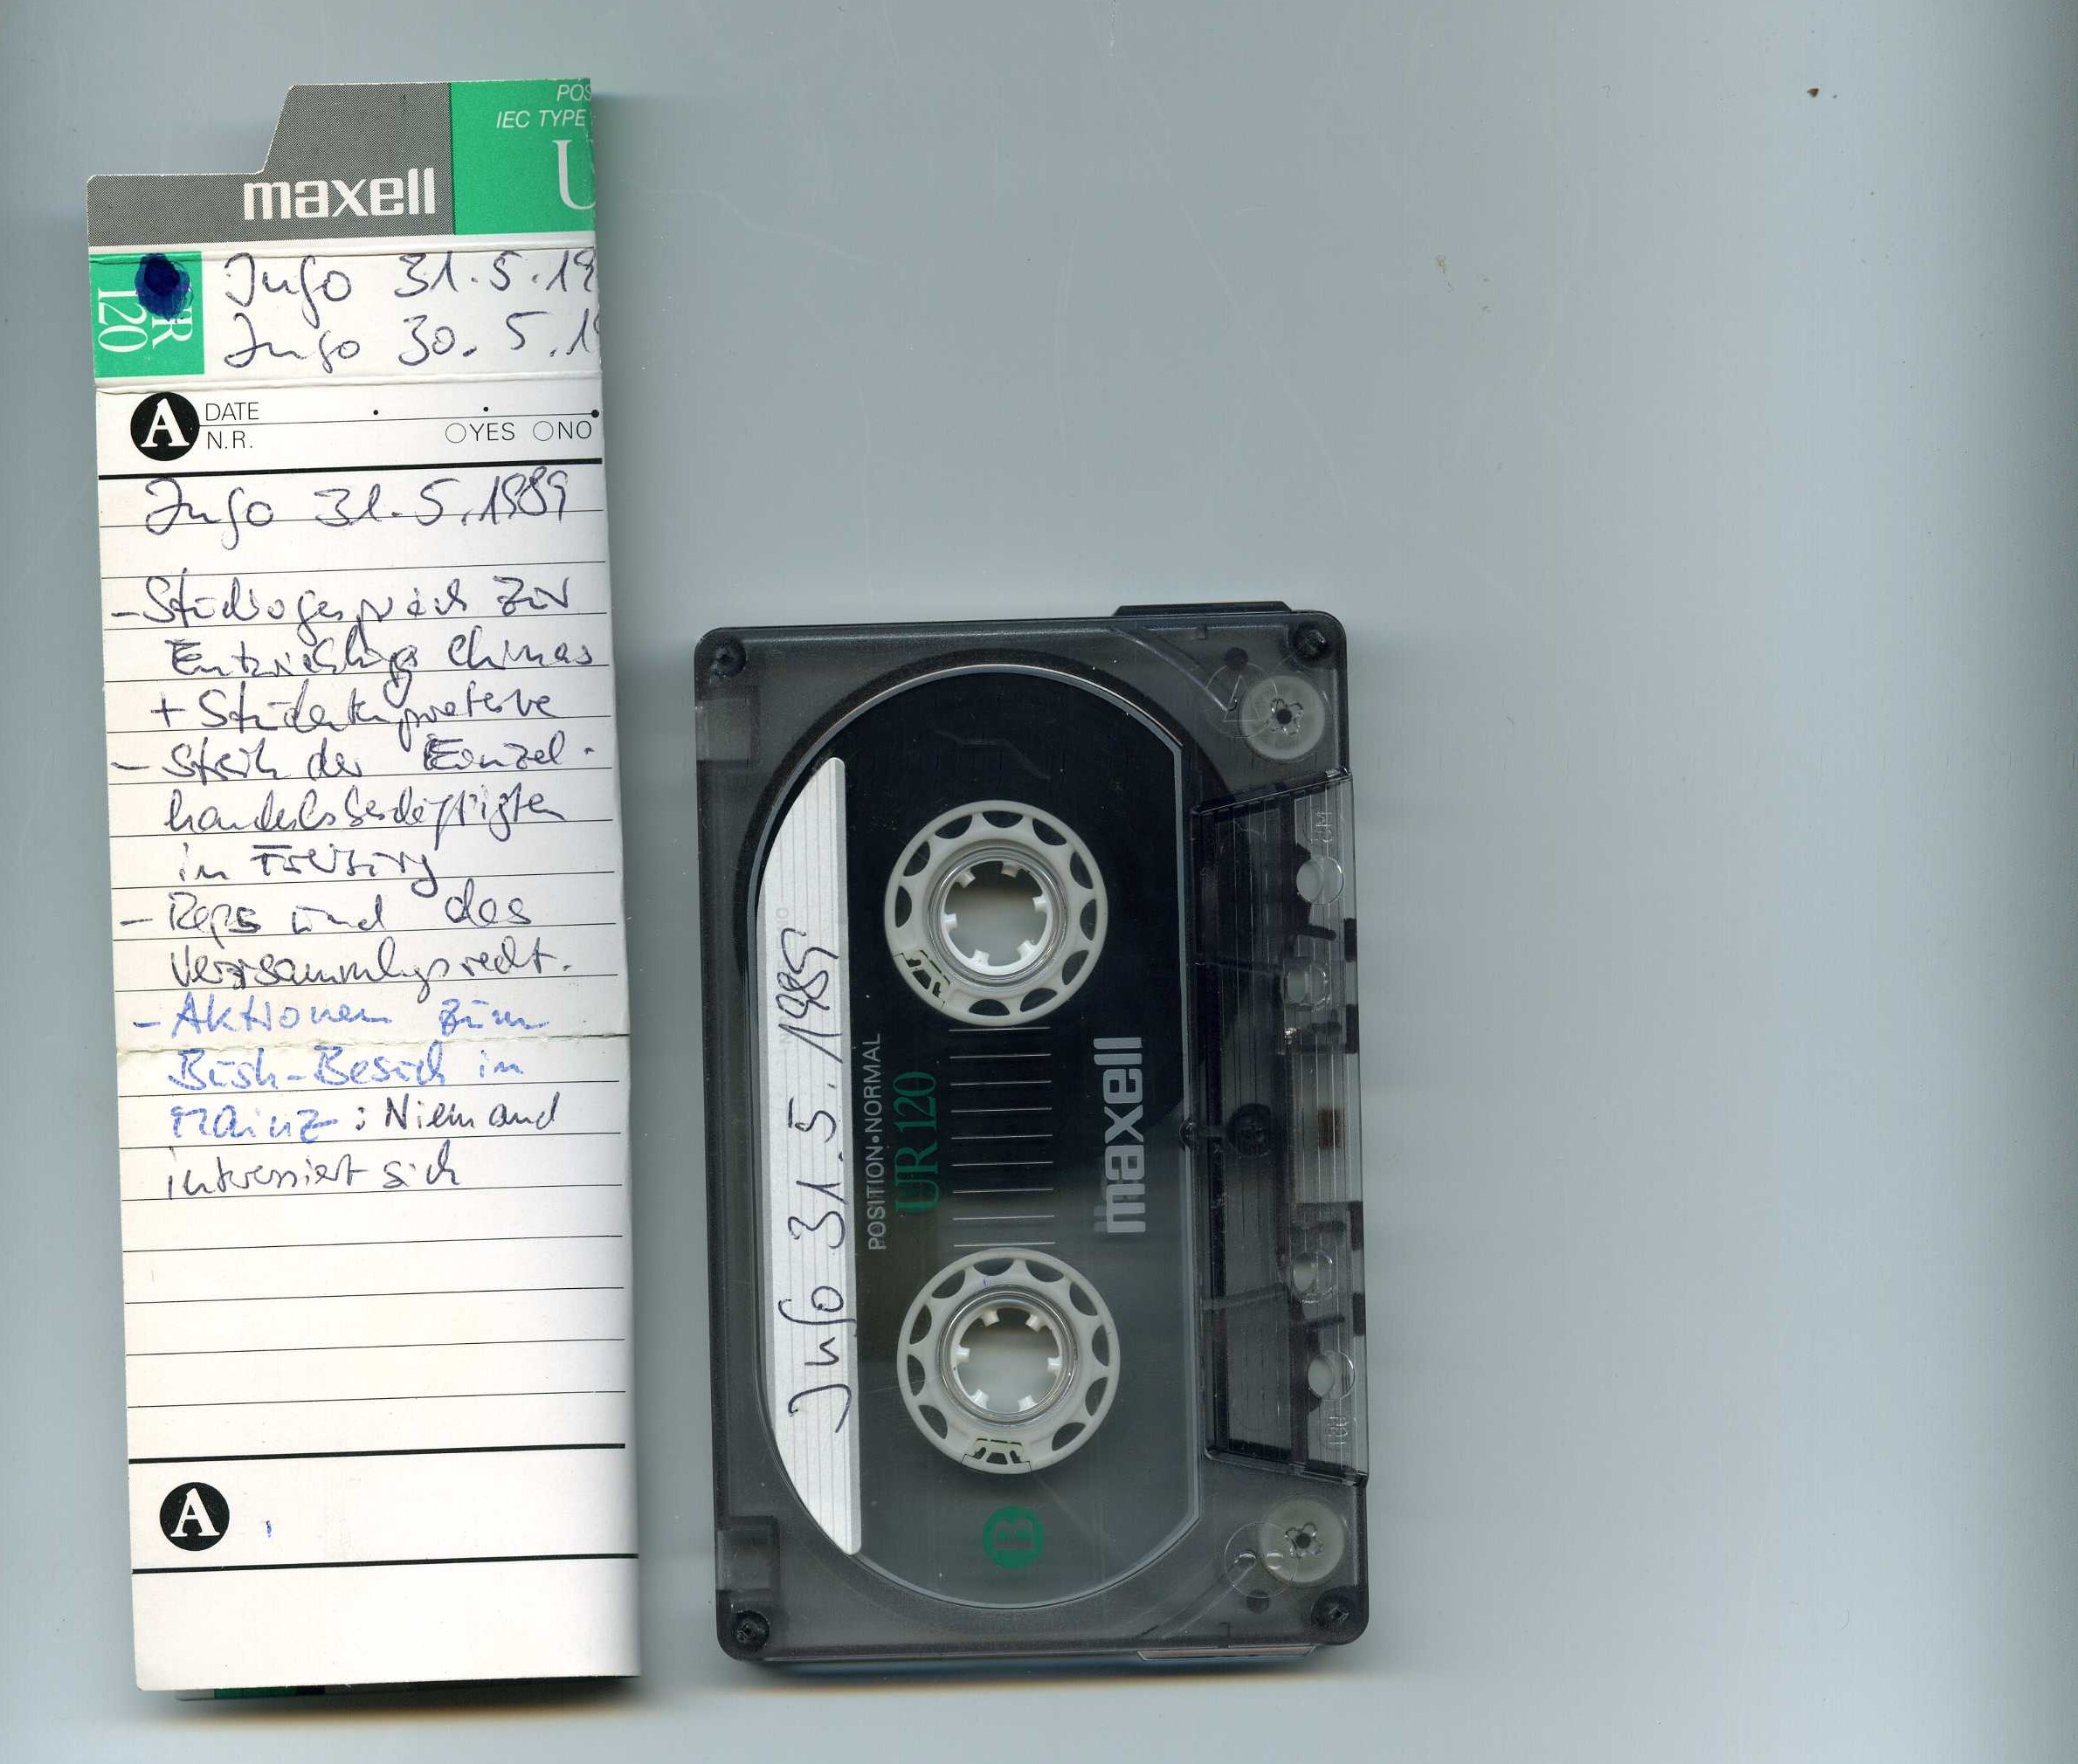 POS
IEC TYPE
U
maxell
UR
120
Info 31.5.19
Info 30.5.1
A DATE
N.R. YES NO
Info 31.5.1989
- Studiogespräch zur
Entwicklung Chinas
+ Studentenproteste
- Streik der Einzel-
handelsbeschäftigten
in Freiburg
- Reps und das
Versammlungsrecht.
- Aktionen zum
Bush-Besuch in
Mainz: Niemand
interessiert sich
A
Info 31.5.1989
POSITION•NORMAL
UR 120
maxell
B